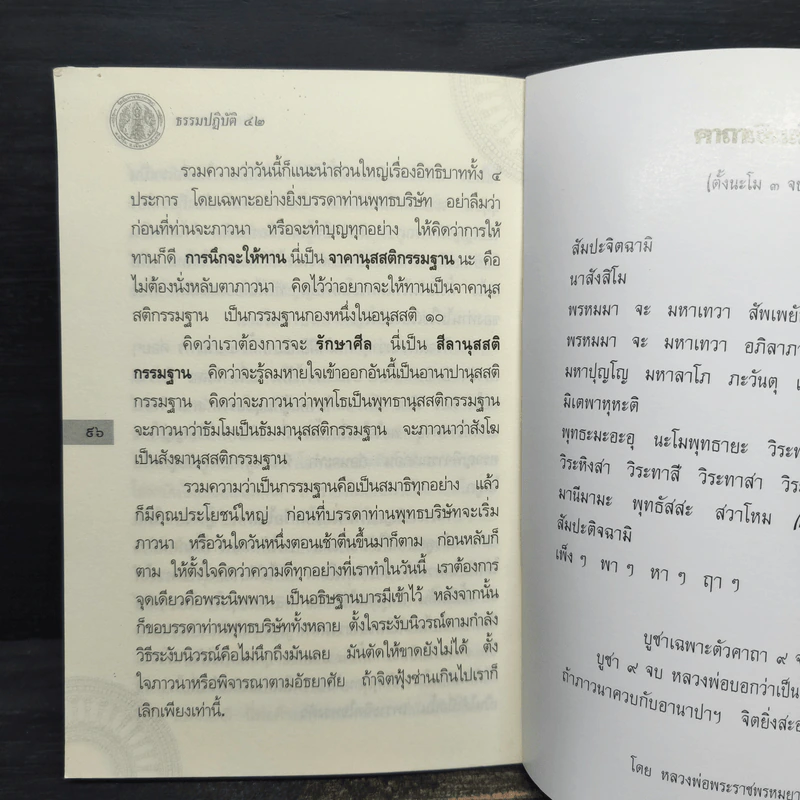 ธรรมปฏิบัติ ๔๒
รวมความว่าวันนี้ก็แนะนำส่วนใหญ่เรื่องอิทธิบาททั้ง ๔
ประการ โดยเฉพาะอย่างยิ่งบรรดาท่านพุทธบริษัท อย่าลืมว่า
ก่อนที่ท่านจะภาวนา หรือจะทำบุญทุกอย่าง ให้คิดว่าการให้
ทานก็ดี การนึกจะให้ทาน นี่เป็น จาคานุสสติกรรมฐาน นะ คือ
ไม่ต้องนั่งหลับตาภาวนา คิดไว้ว่าอยากจะให้ทานเป็นจาคานุส
สติกรรมฐาน เป็นกรรมฐานกองหนึ่งในอนุสสติ ๑๐
คิดว่าเราต้องการจะ รักษาศีล นี่เป็น สีลานุสสติ
กรรมฐาน คิดว่าจะรู้ลมหายใจเข้าออกอันนี้เป็นอานาปานุสสติ
กรรมฐาน คิดว่าจะภาวนาว่าพุทโธเป็นพุทธานุสสติกรรมฐาน
จะภาวนาว่าธัมโมเป็นธัมมานุสสติกรรมฐาน จะภาวนาว่าสังโฆ
เป็นสังฆานุสสติกรรมฐาน
รวมความว่าเป็นกรรมฐานคือเป็นสมาธิทุกอย่าง แล้ว
ก็มีคุณประโยชน์ใหญ่ ก่อนที่บรรดาท่านพุทธบริษัทจะเริ่ม
ภาวนา หรือวันใดวันหนึ่งตอนเช้าตื่นขึ้นมาก็ตาม ก่อนหลับก็
ตาม ให้ตั้งใจคิดว่าความดีทุกอย่างที่เราทำในวันนี้ เราต้องการ
จุดเดียวคือพระนิพพาน เป็นอธิษฐานบารมีเข้าไว้ หลังจากนั้น
ก็ชอบรรดาท่านพุทธบริษัททั้งหลาย ตั้งใจระงับนิวรณ์ตามกำลัง
วิธีระงับนิวรณ์คือไม่นึกถึงมันเลย มันตัดให้ขาดยังไม่ได้ ตั้ง
ใจภาวนาหรือพิจารณาตามอัธยาศัย ถ้าจิตฟุ้งซ่านเกินไปเราก็
เลิกเพียงเท่านี้.
๙๖
(ตั้งนะโม ๓ จบ
สัมปะจิตฉามิ
นาสังสิโม
พรหมมา จะ มหาเทวา สัพเพยั
พรหมมา จะ มหาเทวา อภิลาภา
มหาปุญโญ มหาลาโภ ภะวันตุ เ
มิเตพาหุหะติ
พุทธะมะอะอุ นะโมพุทธายะ วิระท
วิระหิงสา วิระทาสี วิระทาสา วิร
มานีมามะ พุทธัสสะ สวาโหม
สัมปะติจฉามิ
เพ็ง ๆ พา ๆ หา ๆ ฤา ๆ
บูชาเฉพาะตัวคาถา ๙ จ
บูชา ๙ จบ หลวงพ่อบอกว่าเป็น
ถ้าภาวนาควบกับอานาปาฯ จิตยิ่งสะอ
โดย หลวงพ่อพระราชพรหมยา